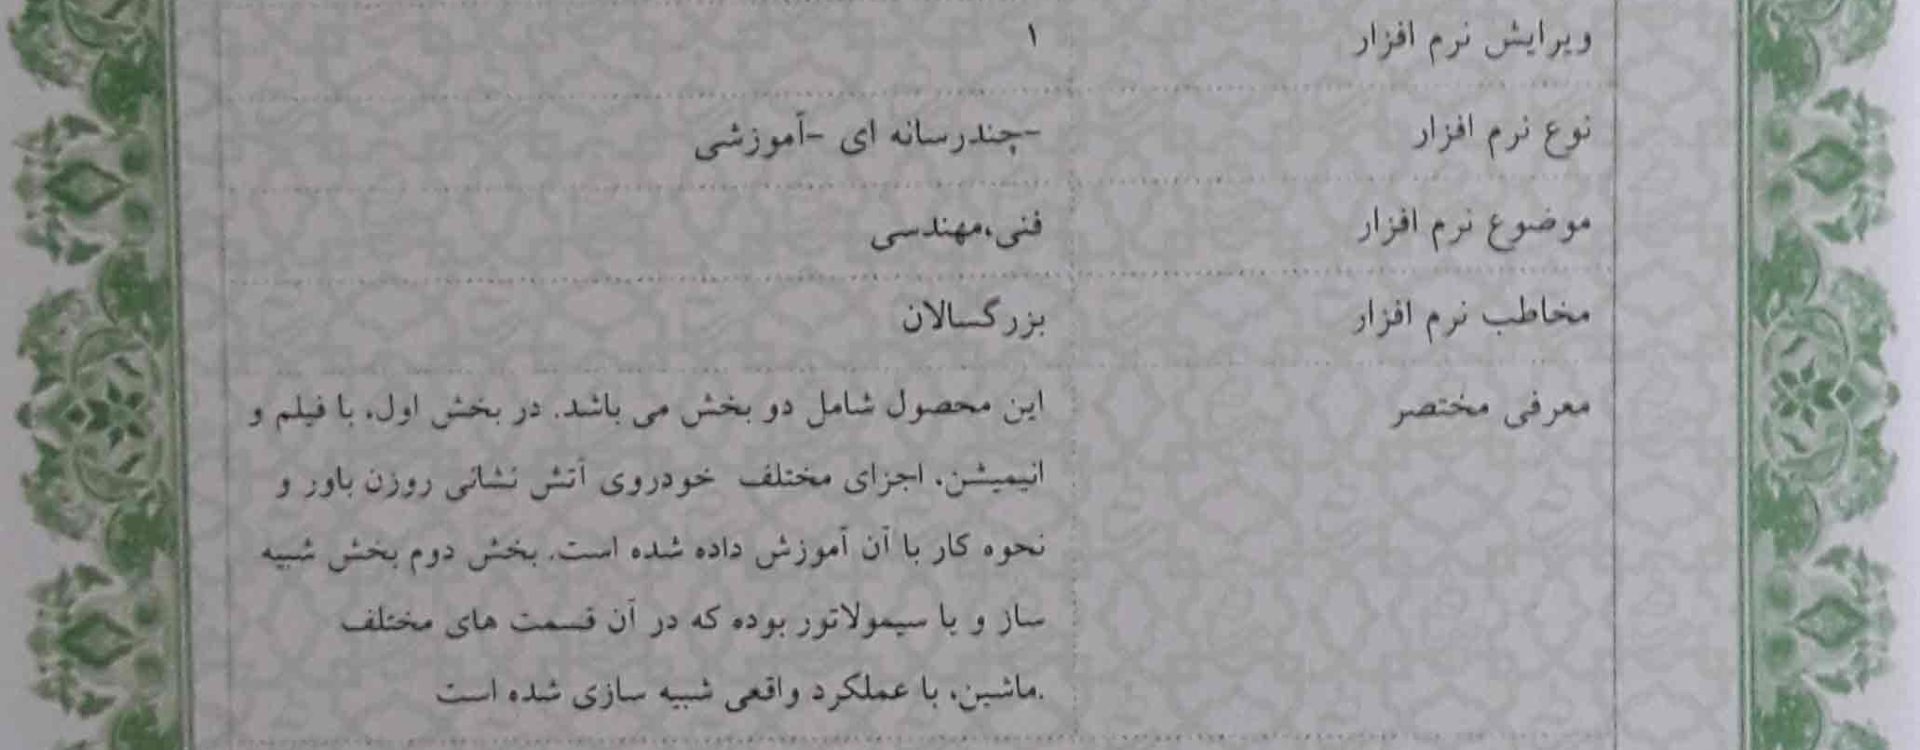 ویرایش نرم افزار ۱
نوع نرم افزار -چندرسانه ای -آموزشی
موضوع نرم افزار فنی،مهندسی
مخاطب نرم افزار بزرگسالان
معرفی مختصر این محصول شامل دو بخش می باشد. در بخش اول، با فیلم و
انیمیشن، اجزای مختلف خودروی آتش نشانی روزن باور و
نحوه کار با آن آموزش داده شده است. بخش دوم بخش شبیه
ساز و یا سیمولاتور بوده که در آن قسمت های مختلف
.ماشین، با عملکرد واقعی شبیه سازی شده است